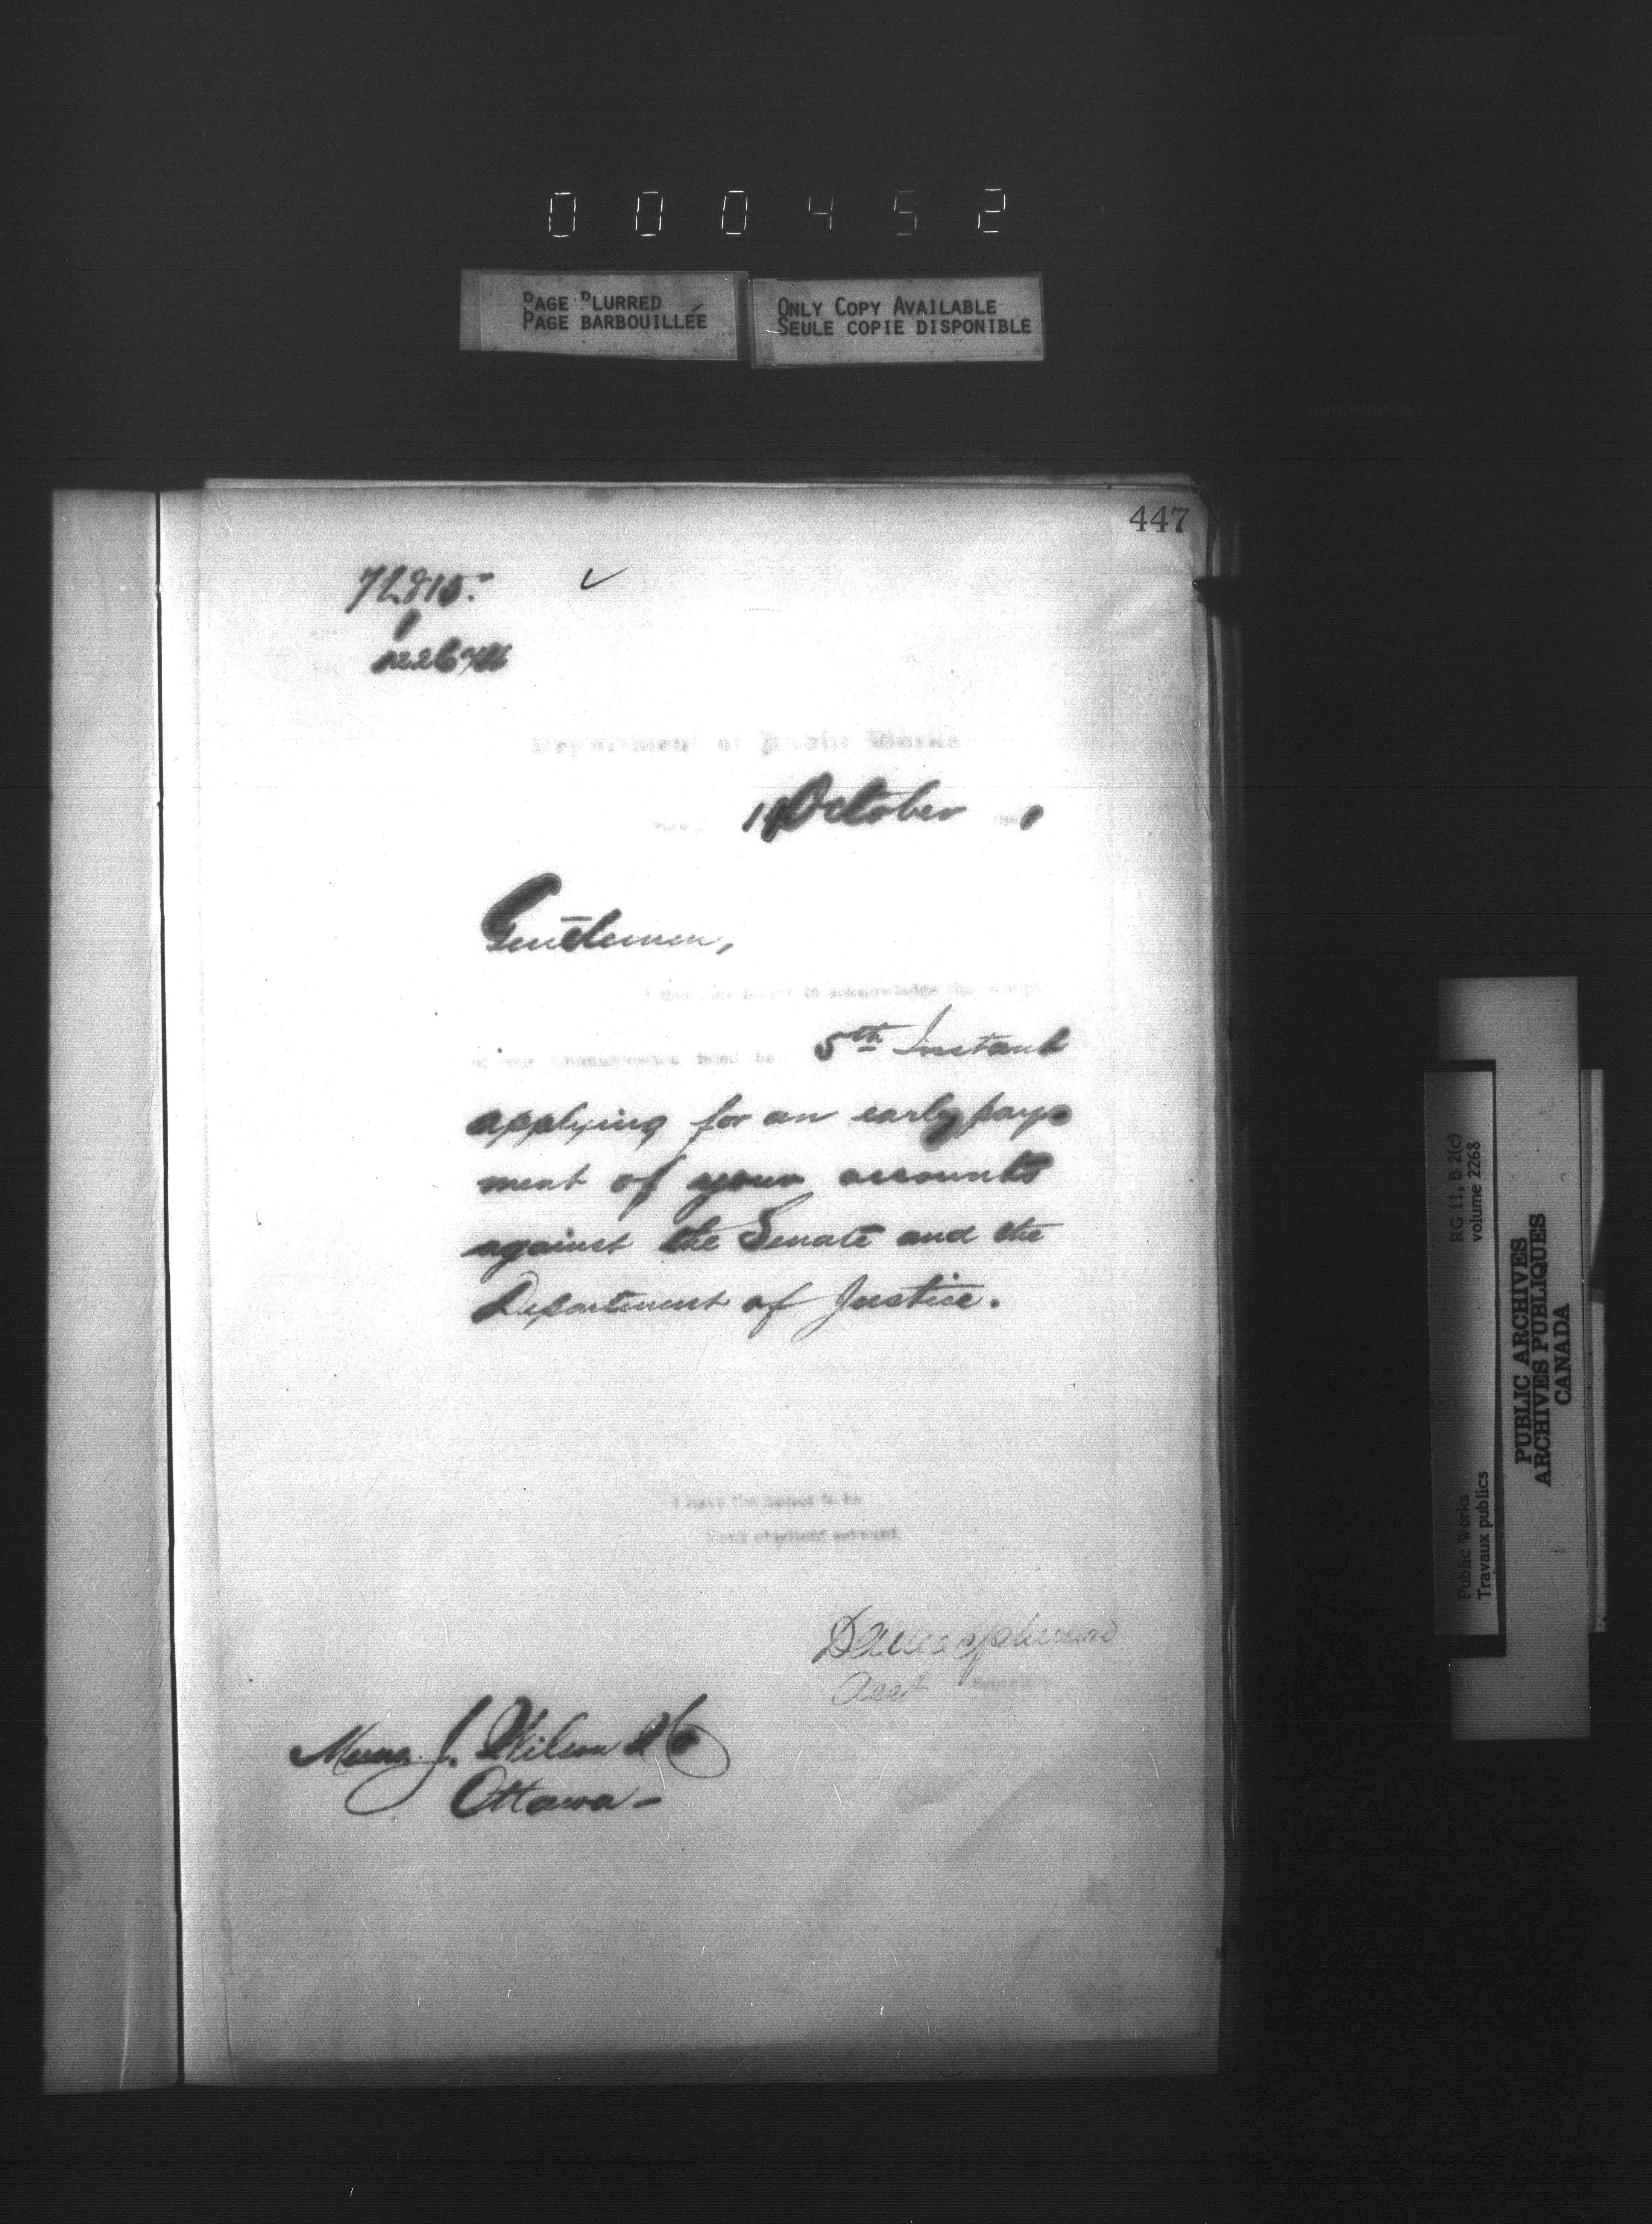 000452
PAGE BLURRED
PAGE BARBOUILLÉE
ONLY COPY AVAILABLE
SEULE COPIE DISPONIBLE
447
Department of Public Works
October
Gentlemen,
I have the honor to acknowledge the receipt
of your communication dated the 5th Instant
applying for an early pay-
ment of your accounts
against the Senate and the
Department of Justice.
I have the honor to be
Your obedient servant
Messrs. J. Wilson & Co
Ottawa -
RG 11, B 2(c)
volume 2268
Public Works
Travaux publics
PUBLIC ARCHIVES
ARCHIVES PUBLIQUES
CANADA